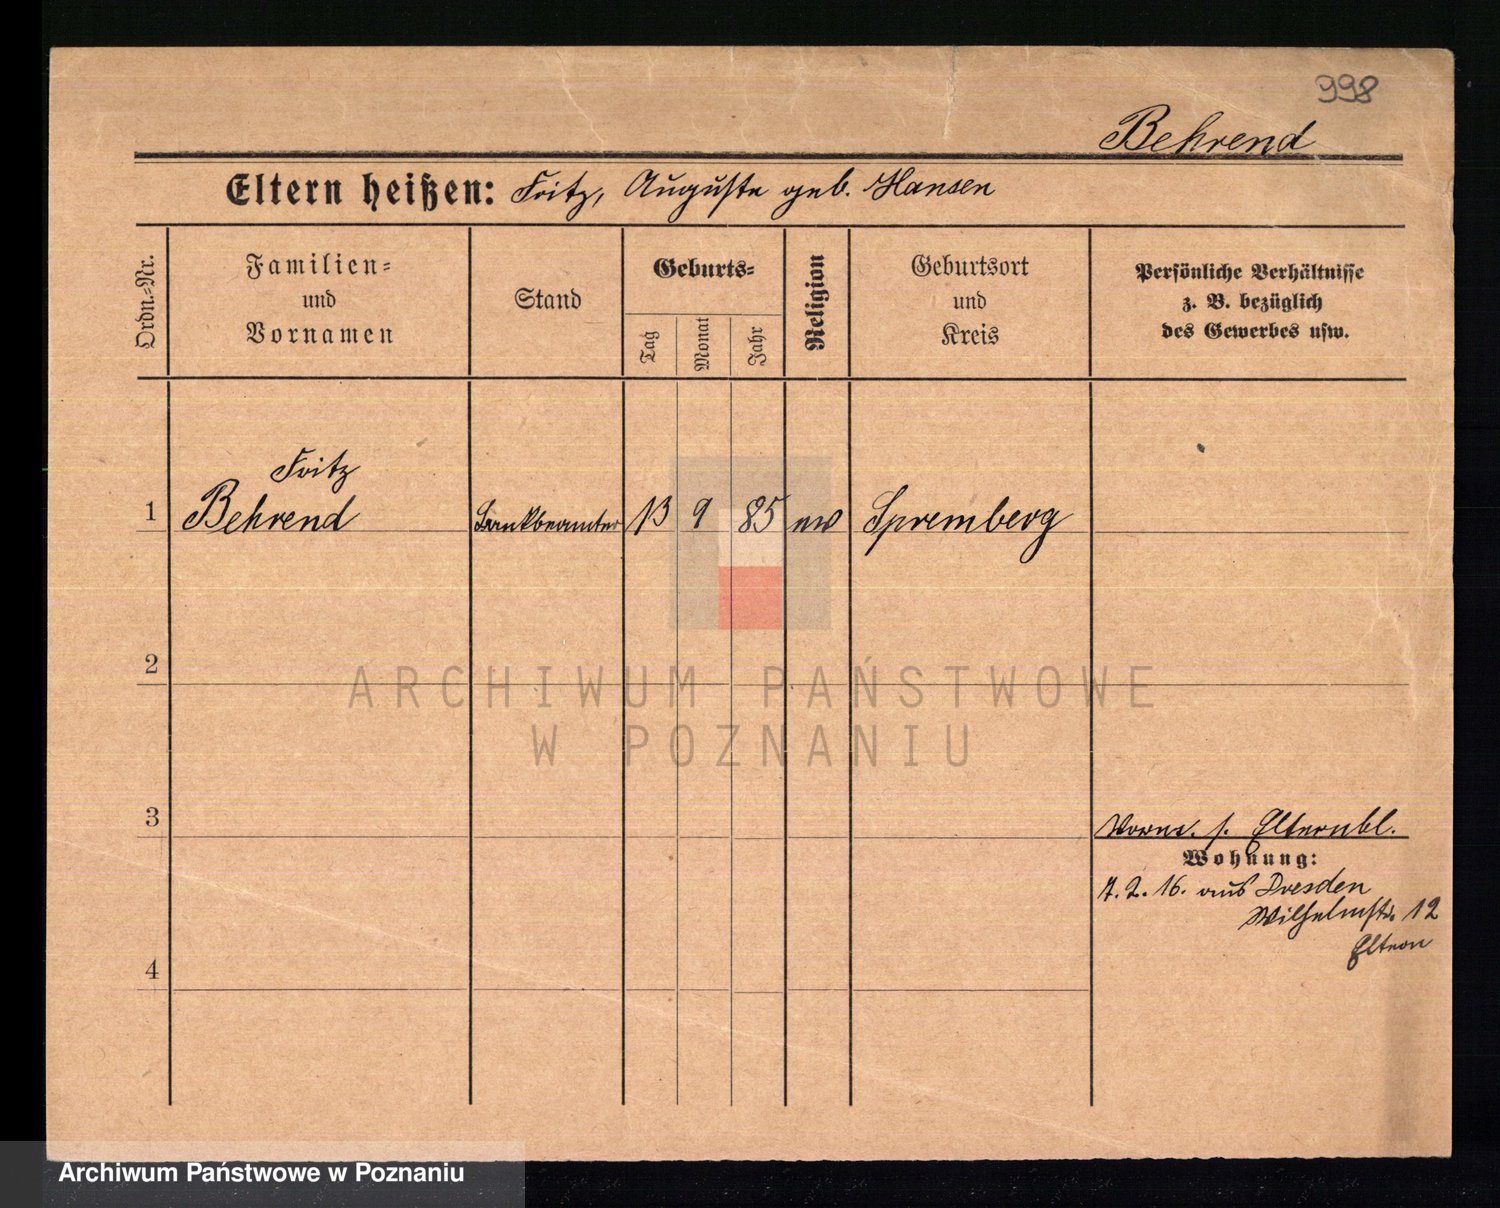 998
Behrend
Eltern heißen: Fritz, Auguste geb. Hansen
Ordn.-Nr.
Familien-
und
Vornamen
Stand
Geburts-
Tag
Monat
Jahr
Religion
Geburtsort
und
Kreis
Persönliche Verhältnisse
z. B. bezüglich
des Gewerbes usw.
Fritz
1 Behrend Bankbeamter 13 9 85 ew Spremberg
2
ARCHIWUM PAŃSTWOWE
W POZNANIU
3
s. Elternbl.
Wohnung:
7. 2. 16. aus Dresden
Wilhelmstr. 12
Eltern
4
Archiwum Państwowe w Poznaniu